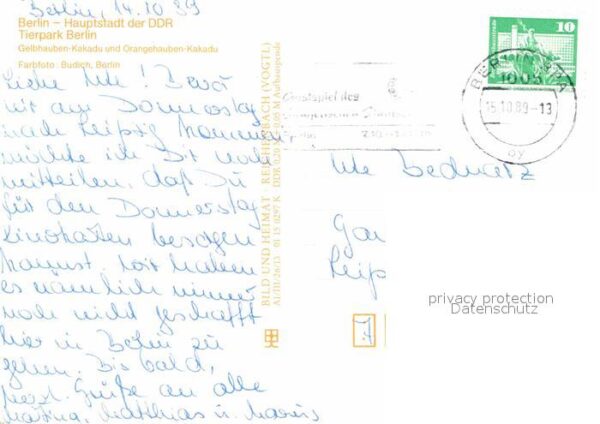 Berlin, 14.10.89
Berlin – Hauptstadt der DDR
Tierpark Berlin
Gelbhauben-Kakadu und Orangehauben-Kakadu
Farbfoto: Budich, Berlin
Liebe Ute! Bevor
wir am Donnerstag
nach Leipzig kommen
möchte ich Dir noch
mitteilen, daß Du
für den Donnerstag
Kinokarten besorgen
kannst. Wir haben
es nämlich immer
noch nicht geschafft
hier in Berlin zu
gehen. Bis bald,
herzl. Grüße an alle
Matthias u.
BILD UND HEIMAT REICHENBACH (VOGTL)
A1/III/26/13 01 15 0297 K
10
BERLIN
1005
15.10.89-13
ay
Ute Bednarz
Leip
privacy protection
Datenschutz